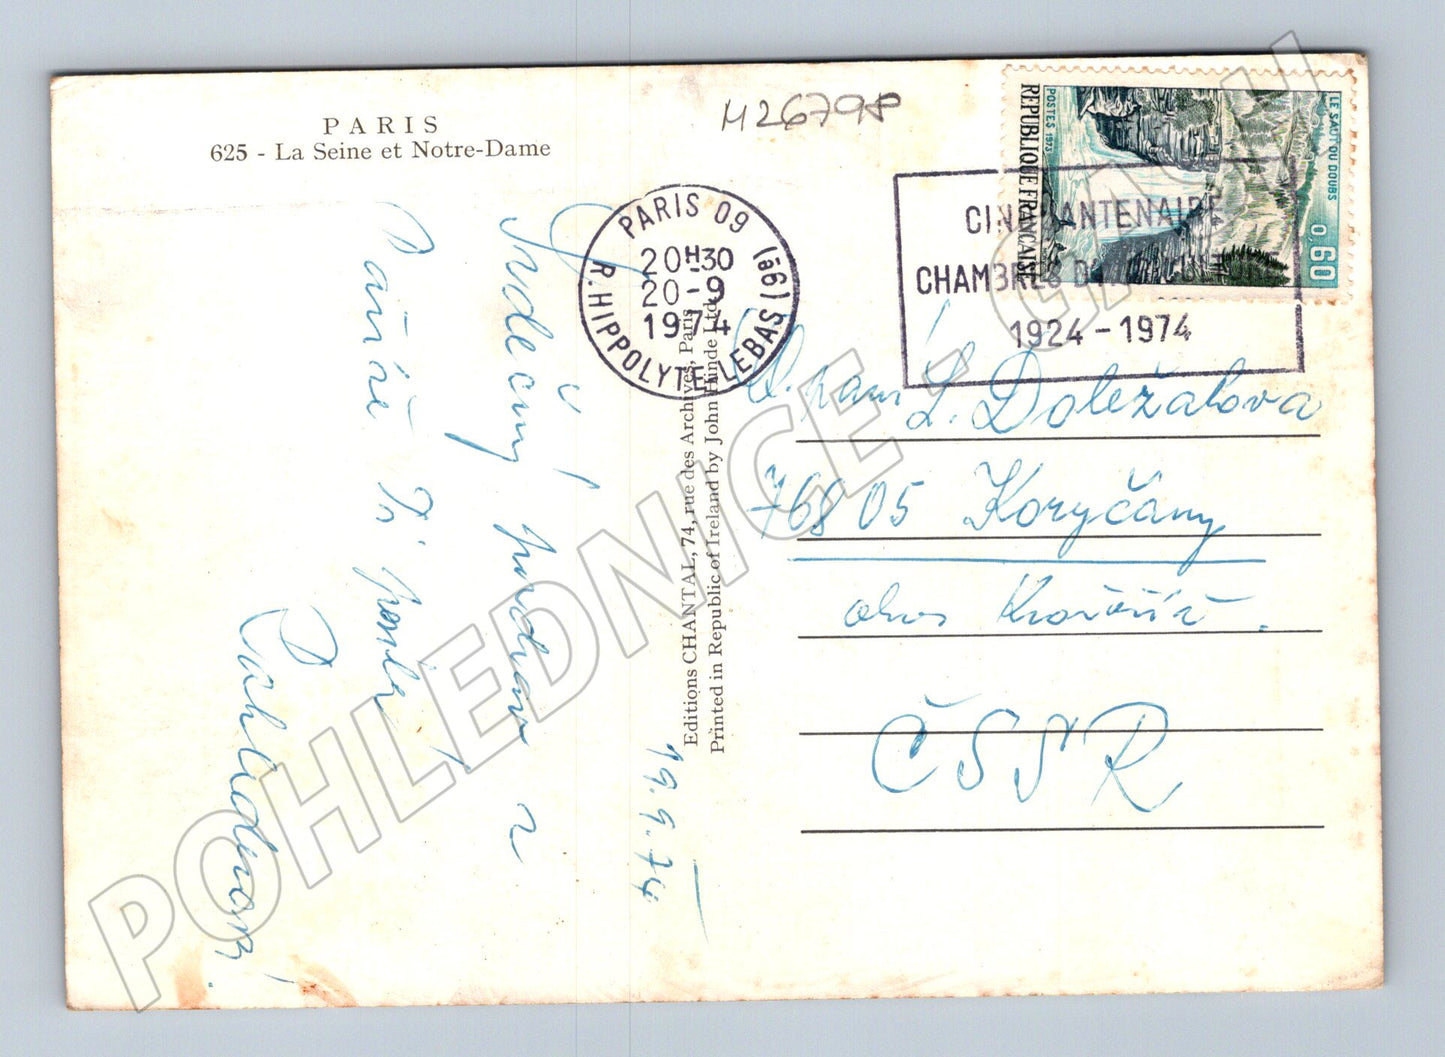 PARIS
625 - La Seine et Notre-Dame
M26798
LE SAUT DU DOUBS
0,60
POSTES 1973
REPUBLIQUE FRANÇAISE
PARIS 09
20H30
20-9
1974
R. HIPPOLYTE LEBAS (9è)
CINQUANTENAIRE
CHAMBRES D'
1924 - 1974
Srdečný pozdrav z
Paříže Vr posílá
19.9.74
Editions CHANTAL, 74, rue des Archives, Paris
Printed in Republic of Ireland by John Hinde Ltd.
V. paní L. Doležalova
76805 Koryčany
okres Kroměříž.
ČSSR
POHLEDNICE - CZ